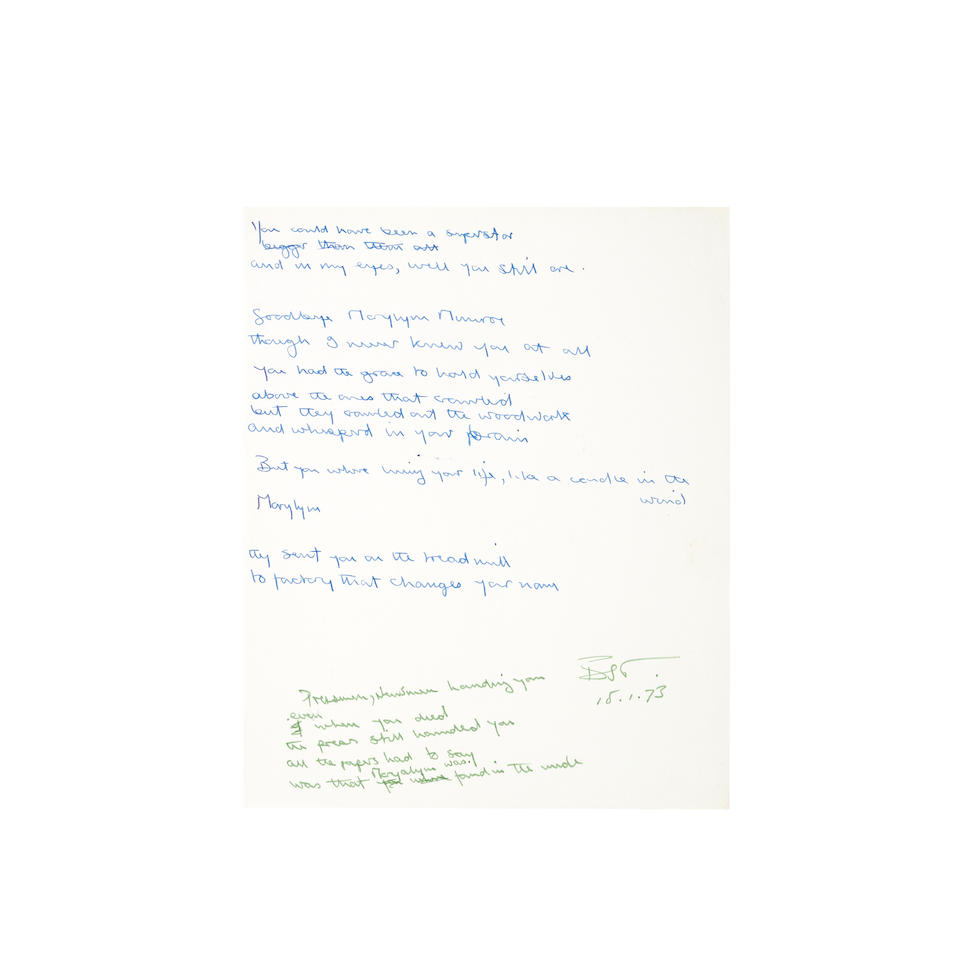 You could have been a superstar
bigger than them all
and in my eyes, well you still are.
Goodbye Marylyn Munroe
though I never knew you at all
You had the grace to hold yourselves
above the ones that crawled
but they crawled out the woodwork
and whisperd in your brain
But you where living your life, like a candle in the
wind
Marylyn
they sent you on the treadmill
to factory that changes your name
Pressmen, Newsmen hounding you
15.1.73
even
when you died
the press still hounded you
all the papers had to say
Maryalyn was
was that you where found in the nude